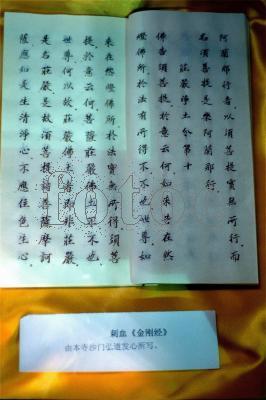 阿蘭那行者以須菩提實無所行而
名須菩提是樂阿蘭那行。
莊嚴淨土分第十
佛告須菩提於意云何如来昔在然
燈佛所於法有所得不不也世尊如
来在然燈佛所於法實無所得須菩
提於意云何菩薩莊嚴佛土不不也
世尊何以故莊嚴佛土者即非莊嚴
是名莊嚴是故須菩提諸菩薩摩訶
薩應如是生清淨心不應住色生心
刺血《金刚经》
由本寺沙门弘道发心所写。